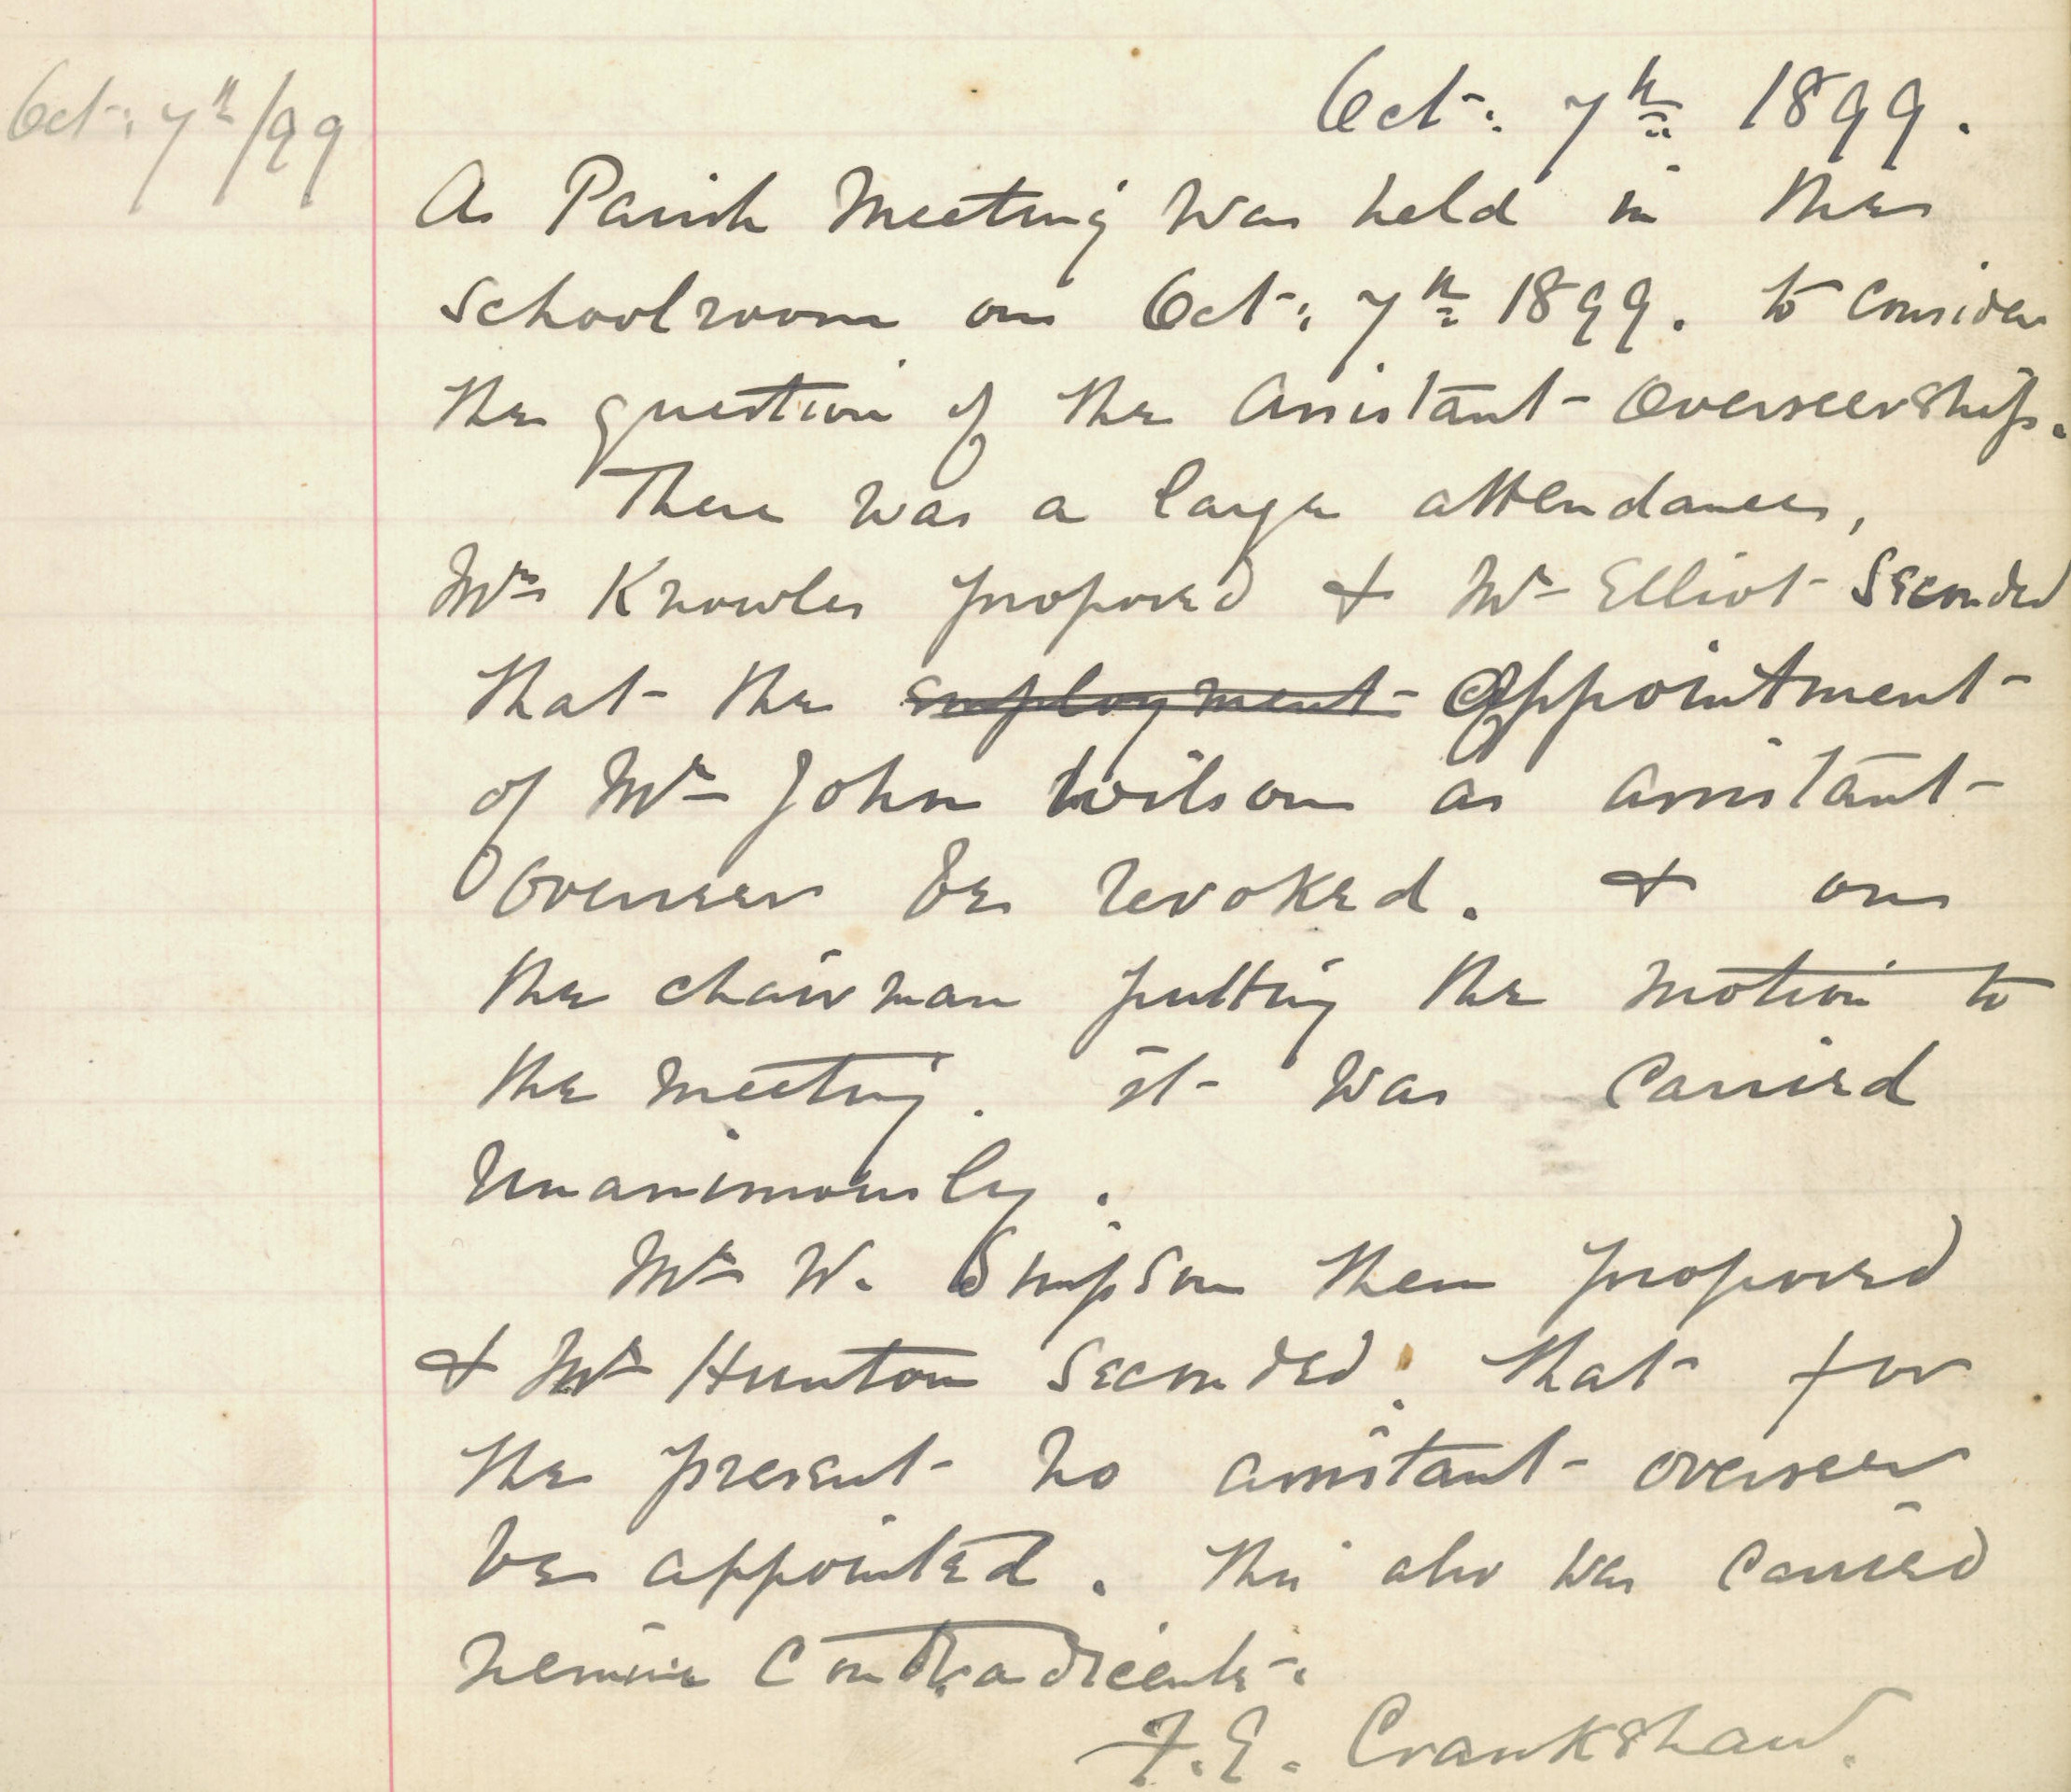 Oct: 7th/99
Oct: 7th 1899.
A Parish Meeting was held in the
schoolroom on Oct: 7th 1899. to consider
the question of the Assistant Overseership.
There was a large attendance,
Mr Knowles proposed & Mr Elliot seconded
that the employment appointment
of Mr John Wilson as assistant
Overseer be revoked. & on
the chairman putting the motion to
the meeting. it was carried
unanimously.
Mr W. Simpson then proposed
& Mr Hunton seconded: that for
the present no assistant overseer
be appointed. This also was carried
nemine contradicente.
F.E. Crankshaw.